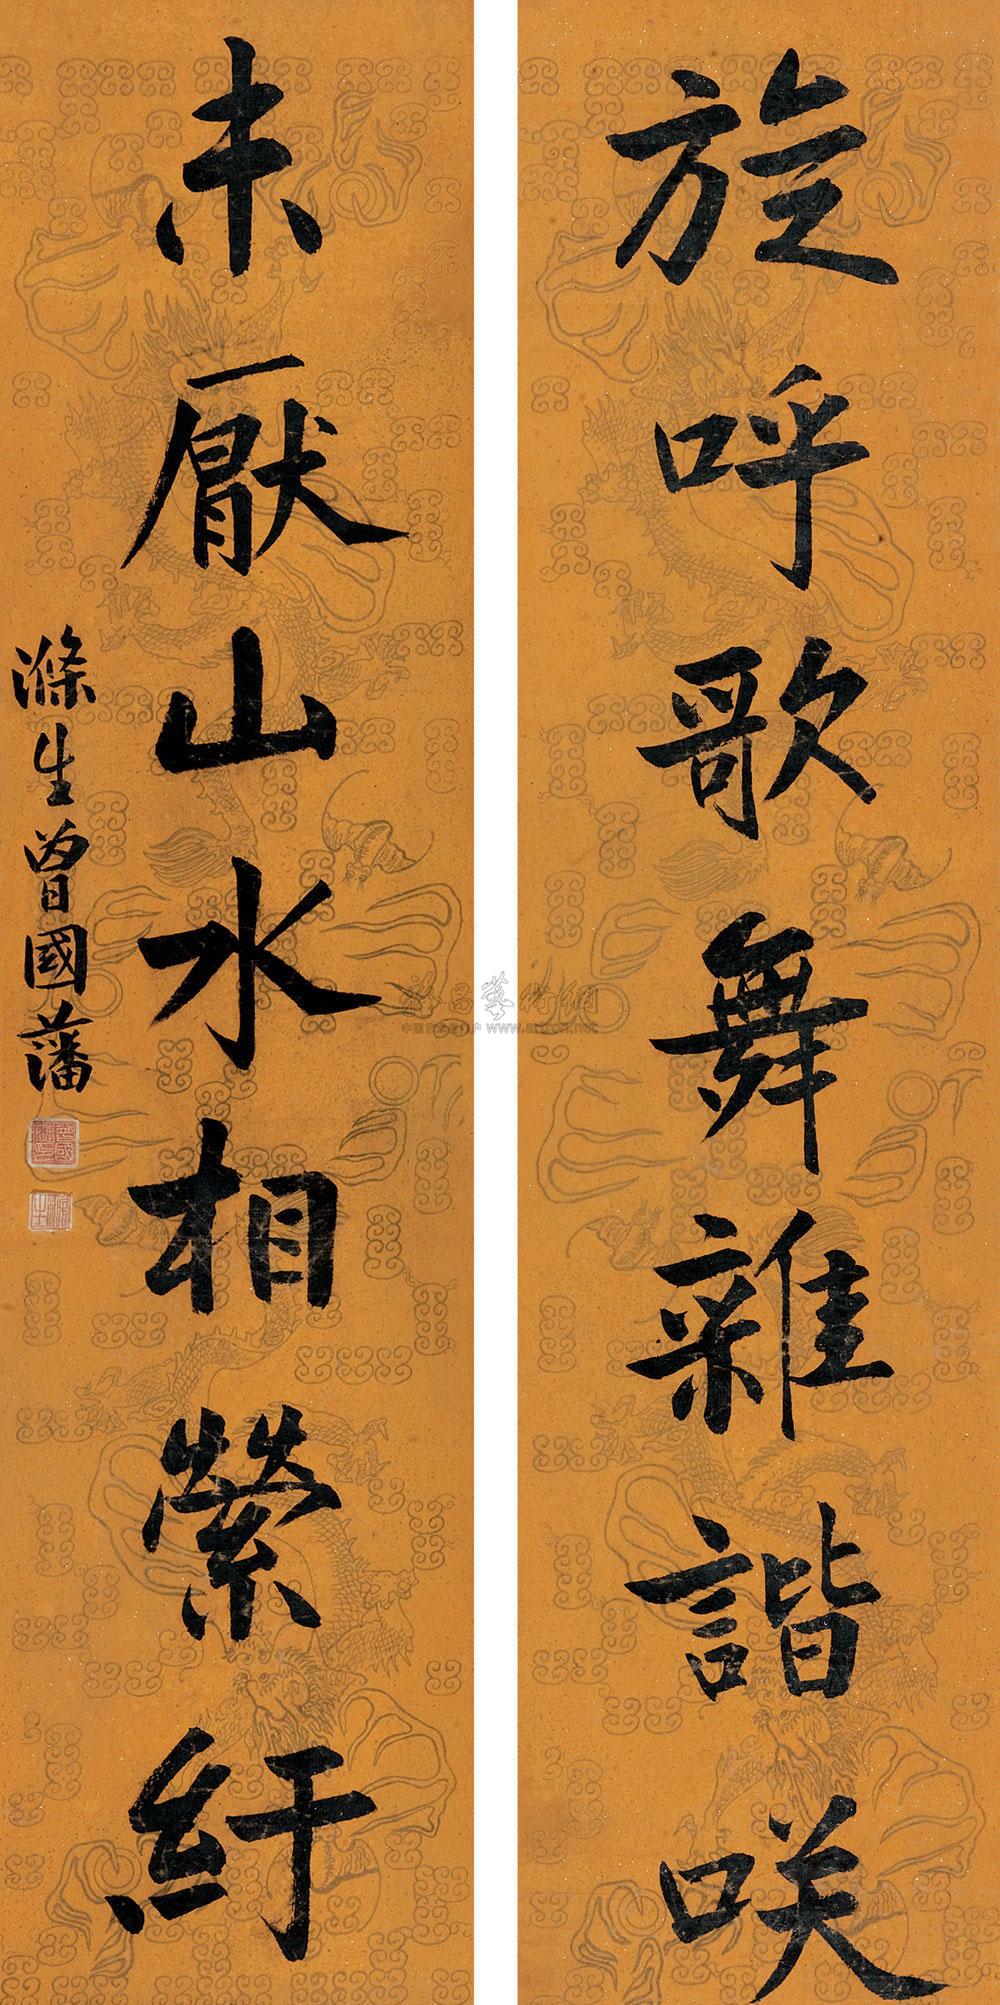 旋呼歌舞雜諧咲
未厭山水相縈紆
滌生曾國藩
www.artron.net